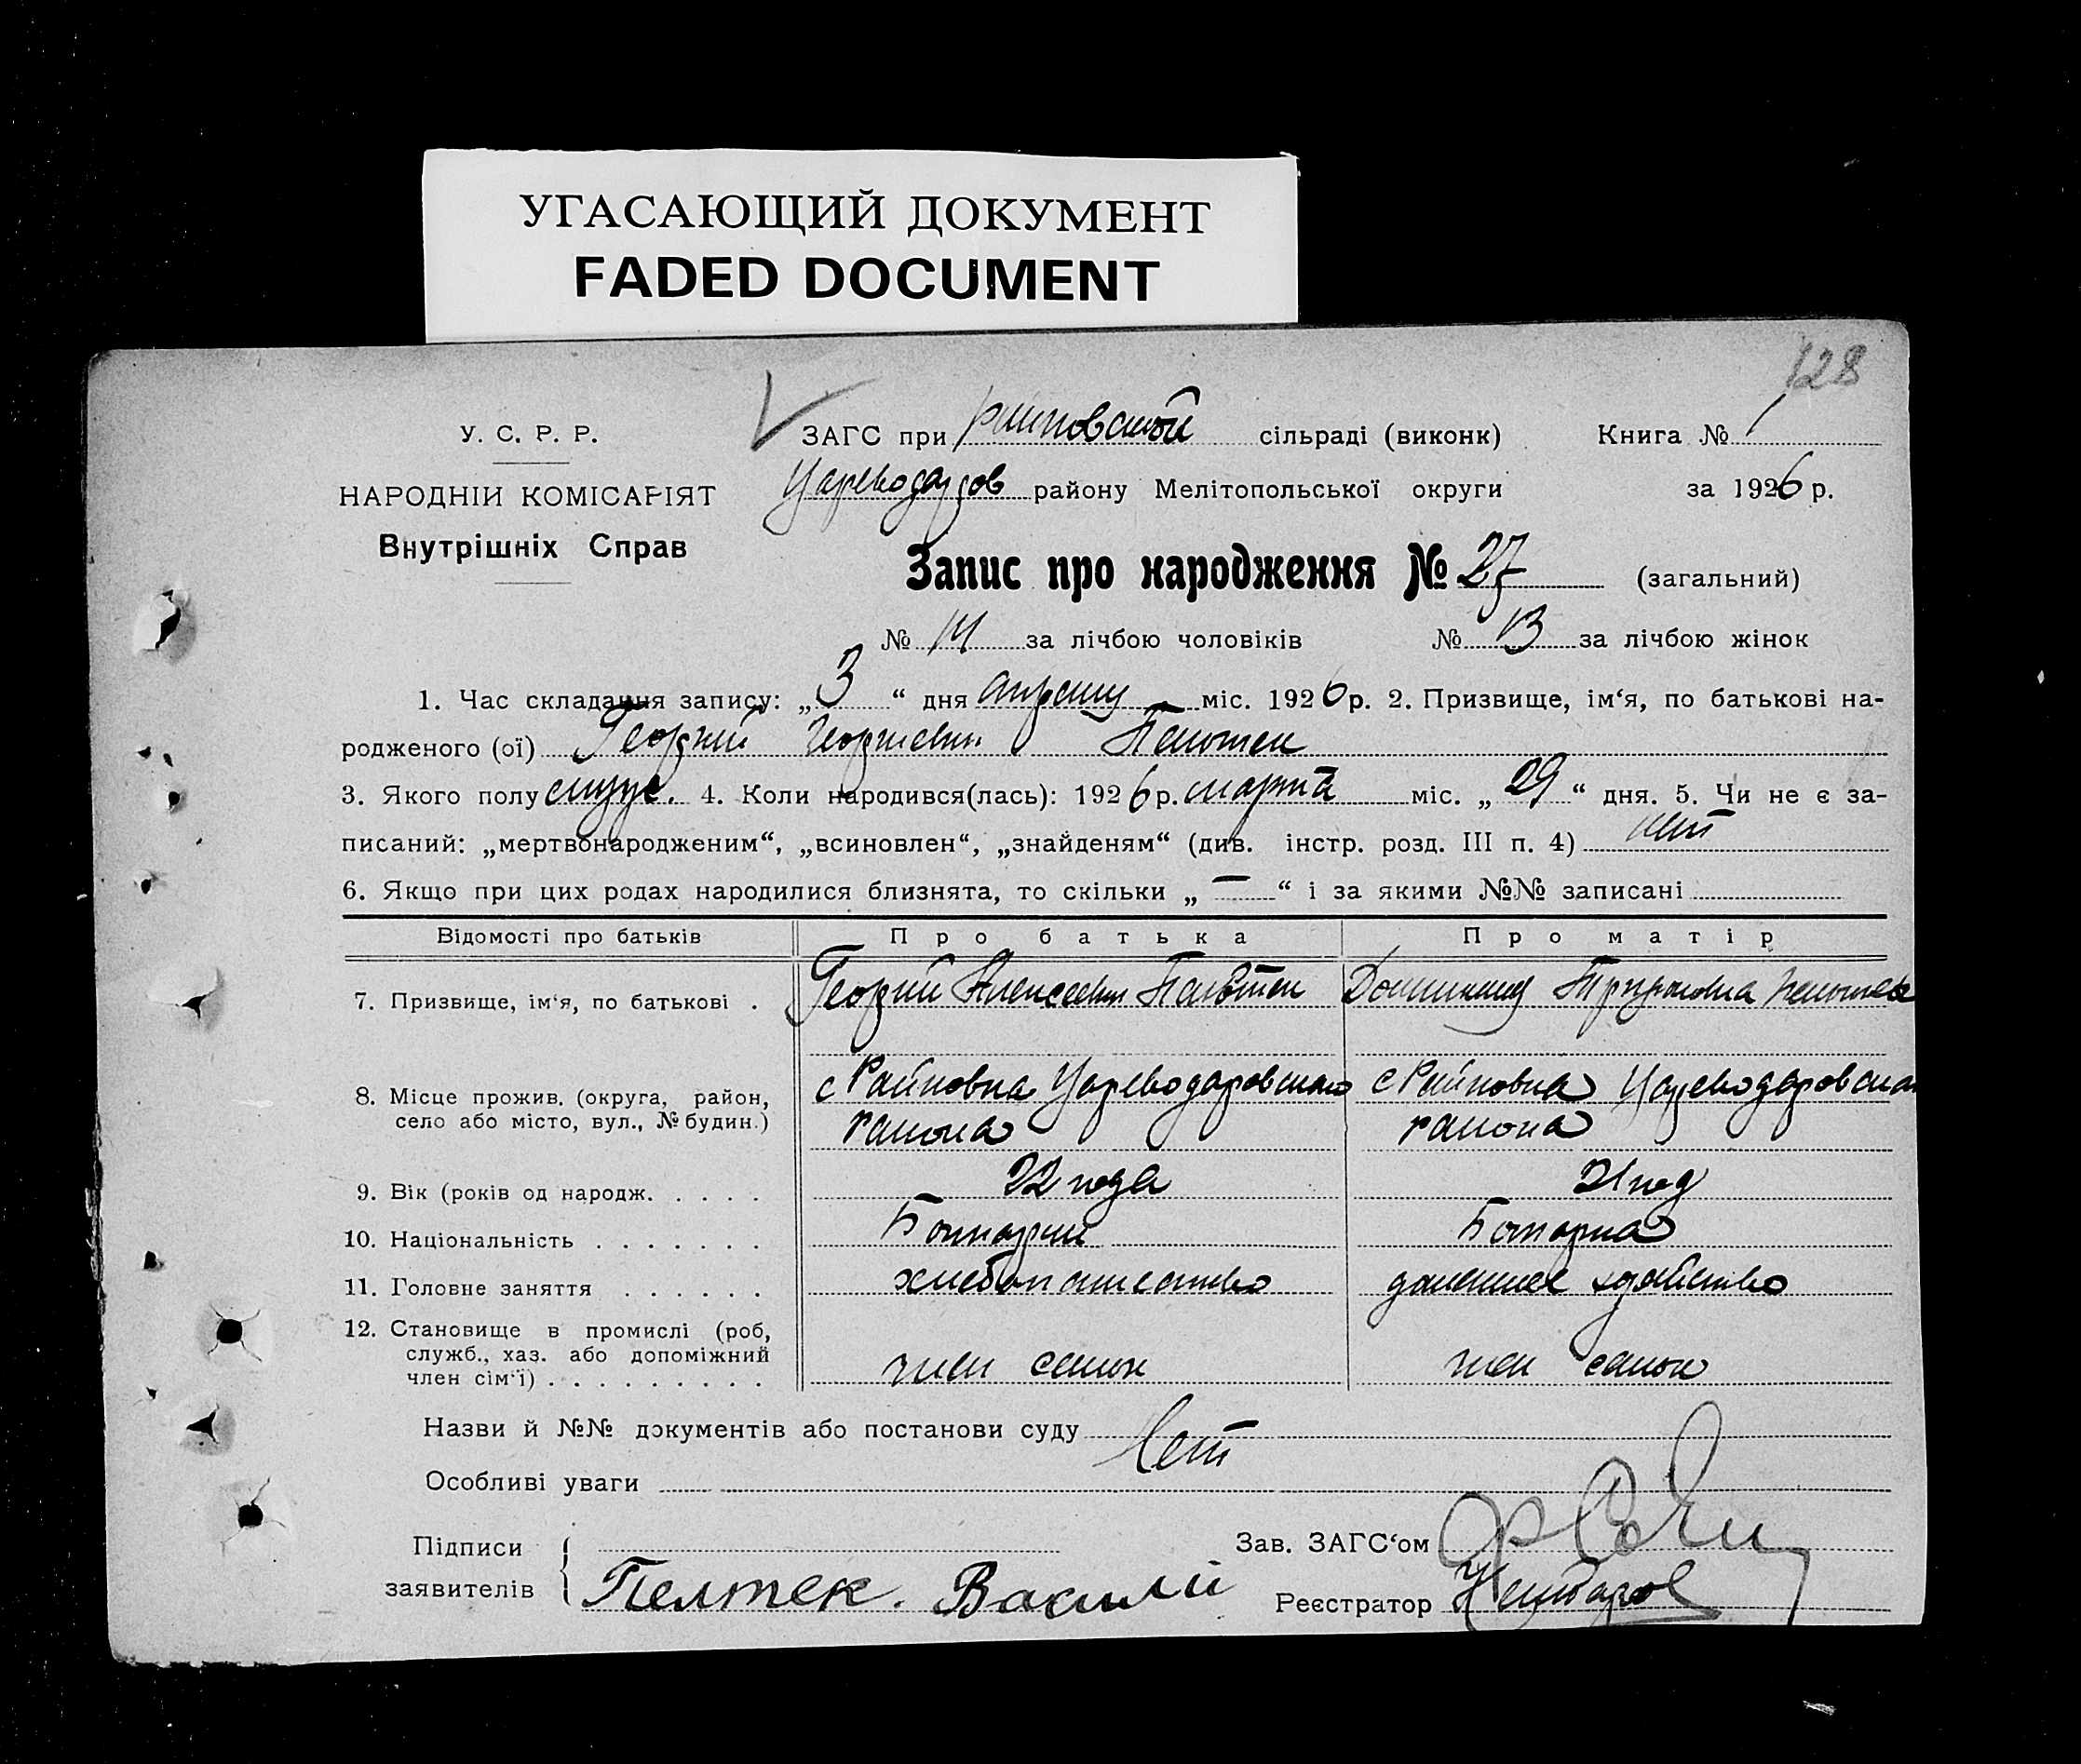 УГАСАЮЩИЙ ДОКУМЕНТ
FADED DOCUMENT
128
У. С. Р. Р.
ЗАГС при сільраді (виконк) Книга № 1
НАРОДНІЙ КОМІСАРІЯТ
району Мелітопольської округи за 1926 р.
Внутрішніх Справ
Запис про народження № 27 (загальний)
№ 14 за лічбою чоловіків № 13 за лічбою жінок
1. Час складання запису: „3“ дня апреля міс. 1926 р. 2. Призвище, ім‘я, по батькові на-
родженого (ої) Георгий Георгиевич Пельтек
3. Якого полу мужс. 4. Коли народився(лась): 1926 р. марта міс. „29“ дня. 5. Чи не є за-
писаний: „мертвонародженим“, „всиновлен“, „знайденям“ (див. інстр. розд. III п. 4) нет
6. Якщо при цих родах народилися близнята, то скільки „—“ і за якими №№ записані
Відомості про батьків Про батька Про матір
7. Призвище, ім‘я, по батькові . Георгий Алексеевич Пельтек
8. Місце прожив. (округа, район, с Райновка Цареводаровского с Райновка Цареводаровска
село або місто, вул., № будин.) района района
9. Вік (років од народж. . . . . 22 года 21 год
10. Національність . . . . . . . Болгарин Болгарка
11. Головне заняття . . . . . . хлебопашество домашнее хозяйство
12. Становище в промислі (роб,
служб., хаз. або допоміжний
член сім‘ї) . . . . . . . . . член семьи член семьи
Назви й №№ документів або постанови суду Нет
Особливі уваги
Підписи Зав. ЗАГС‘ом
заявителів Пелтек. Василй Реєстратор